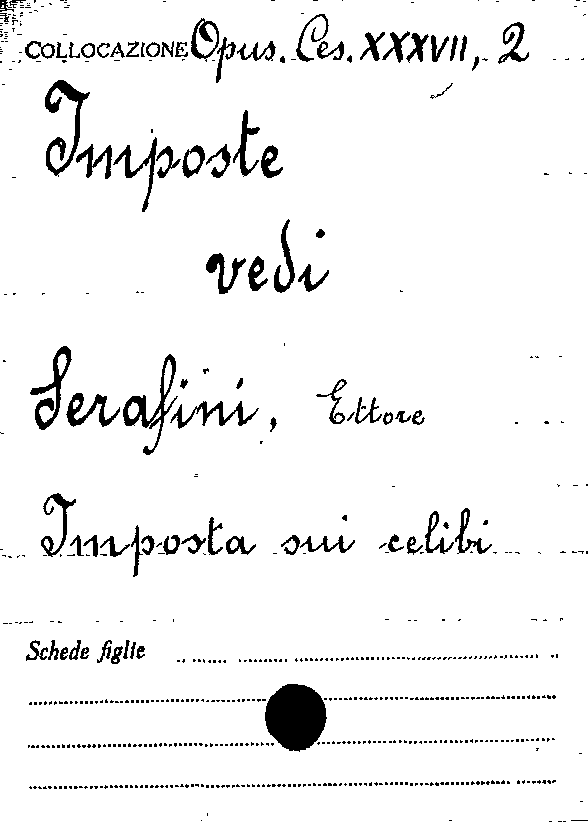 COLLOCAZIONE Opus. Ces. XXXVII, 2
Imposte
vedi
Serafini, Ettore
Imposta sui celibi
Schede figlie